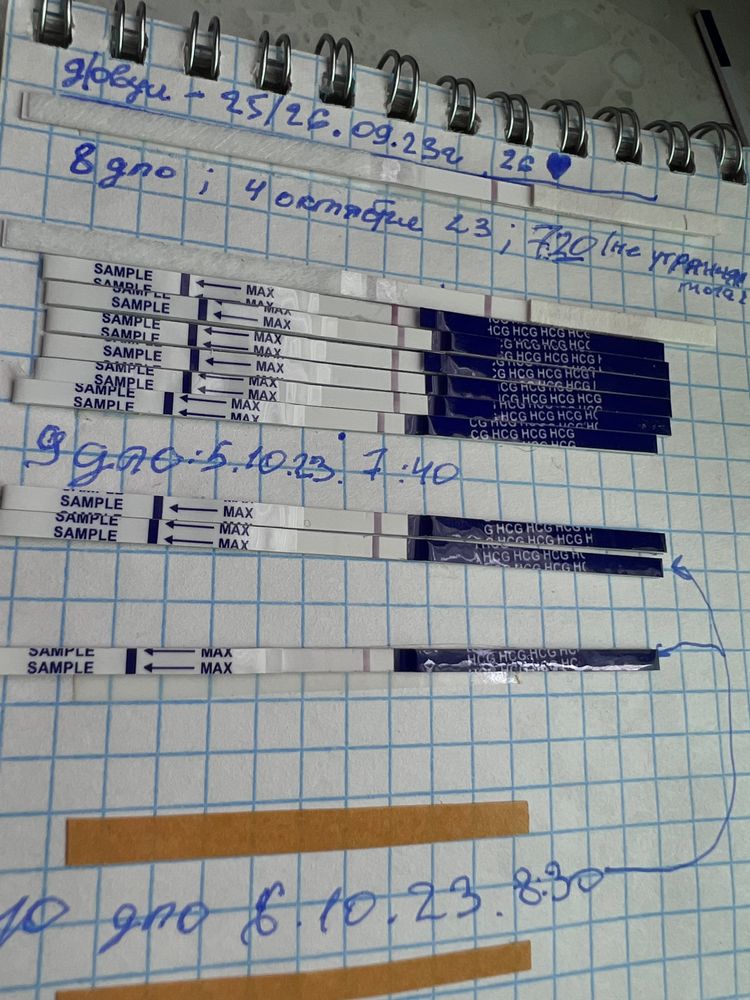 д/овул - 25/26.09.23г 26
8 дпо ; 4 октября 23 ; 7:20 (не утренняя
SAMPLE MAX
SAMPLE MAX
HCG HCG HCG
SAMPLE MAX
G HCG HCG HCG
SAMPLE MAX
HCG HCG HCG
SAMPLE MAX
HCG HCG HCG
SAMPLE MAX
CG HCG HCG HCG
9 дпо: 5.10.23. 7:40
SAMPLE MAX
G HCG HCG HCG H
SAMPLE MAX
HCG HCG HCG HC
SAMPLE MAX
SAMPLE MAX
HCG HCG HCG HC
10 дпо 6.10.23. 8:30